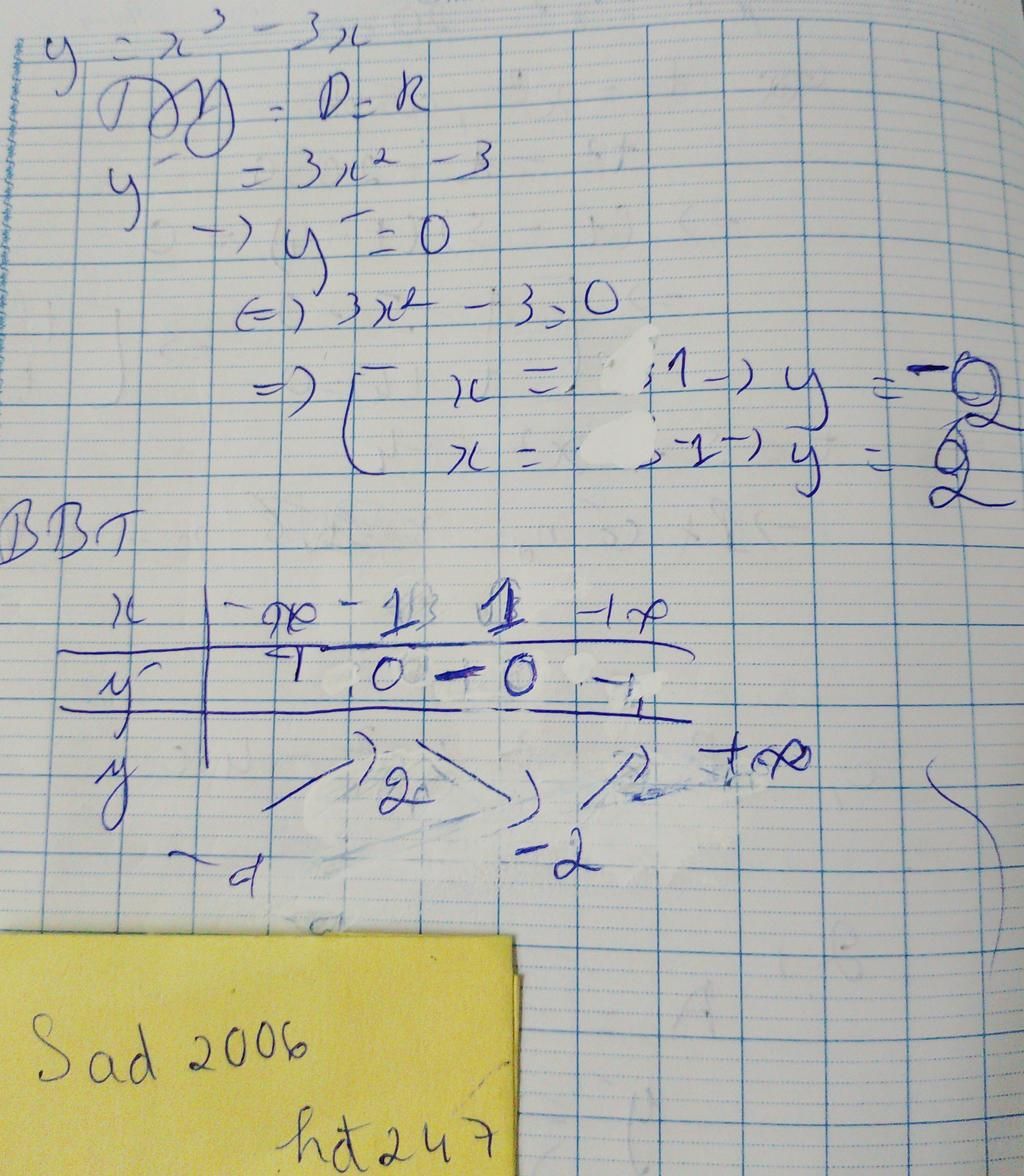 y = x³ - 3x
= D = R
y' = 3x² - 3
→ y' = 0
(=) 3x² - 3 = 0
=) [ x = 1 → y = -2
x = -1 → y = 2
BBT
x -∞ -1 1 +∞
y' + 0 - 0 +
y 2 +∞
-∞ -2
Sad 2006
hdt247